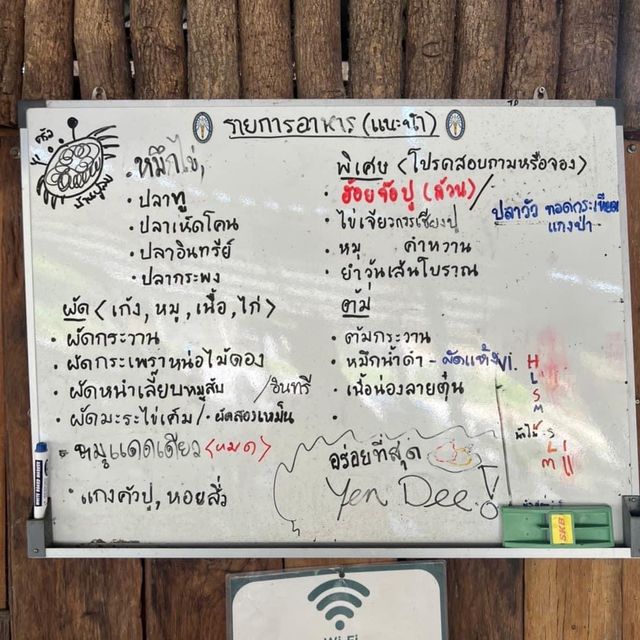 รายการอาหาร (แนะนำ)
หมึกไข่,
• ปลาทู
• ปลาเห็ดโคน
• ปลาอินทรีย์
• ปลากระพง
ผัด < เก้ง, หมู, เนื้อ, ไก่ >
• ผัดกระวาน
• ผัดกระเพราหน่อไม้ดอง
• ผัดหนำเลี๊ยบหมูสับ /อินทรี
• ผัดมะระไข่เค็ม/ • ผัดสองเหม็น
• หมูแดดเดียว <หมด>
• แกงคั่วปู, หอยสิ่ว
พิเศษ <โปรดสอบถามหรือจอง>
• ฮ้อยจ้อปู (ล้วน) /
• ไข่เจียวกรรเชียงปู
• หมู คำหวาน
• ยำวุ้นเส้นโบราณ
ปลาวัว ทอดกระเทียม
แกงป่า
ต้ม
• ต้มกระวาน
• หมึกน้ำดำ - ผัดแห้ง
• เนื้อน่องลายตุ๋น
•
อร่อยที่สุด
Yen Dee!
H
L
S
M
S
L
M
SKB
Wi-Fi